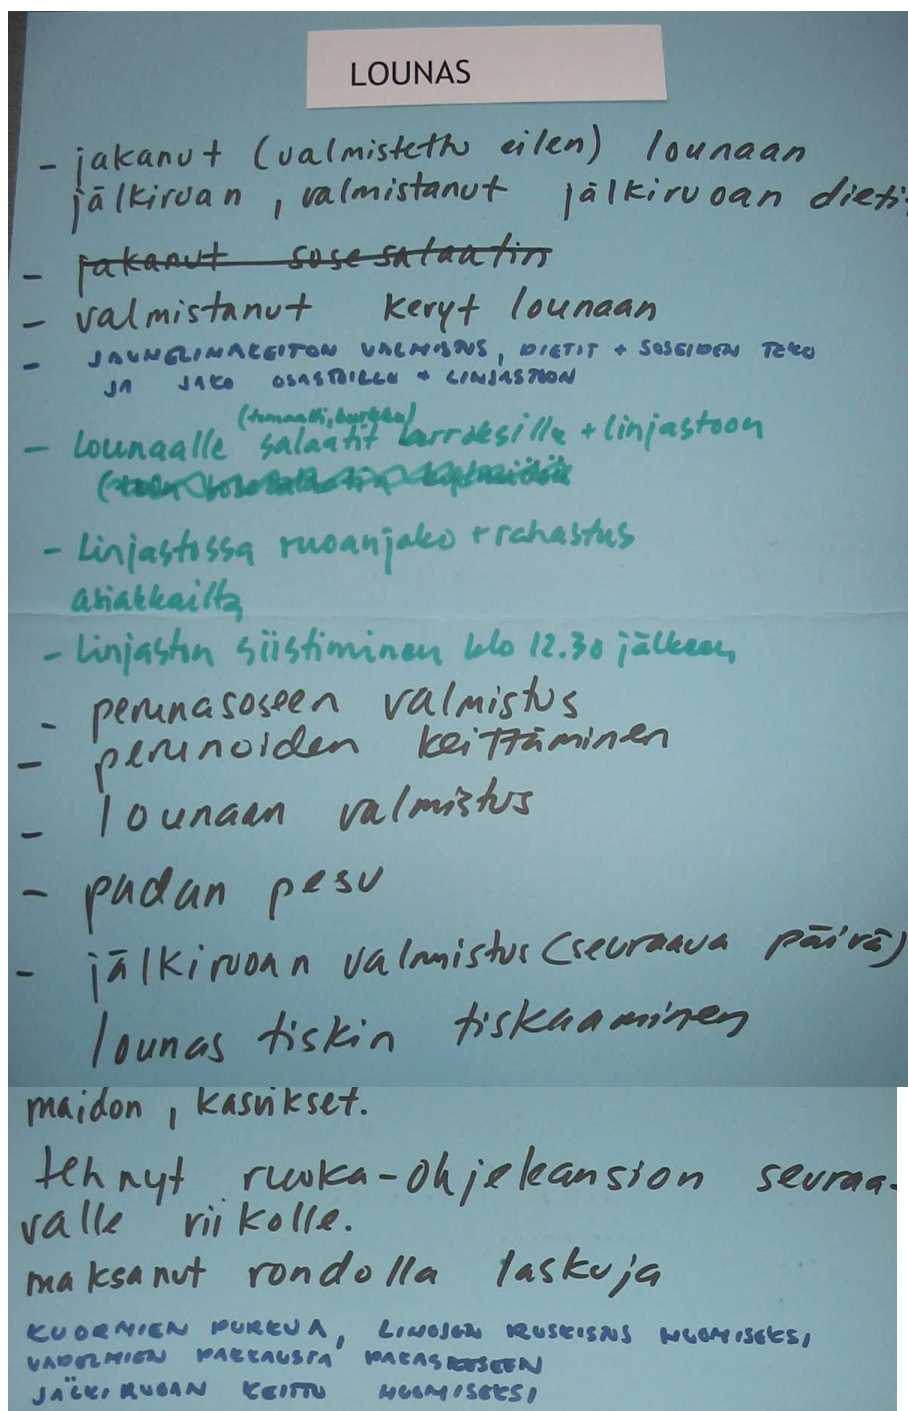 LOUNAS
- jakanut (valmistettu eilen) lounaan
jälkiruan, valmistanut jälkiruoan dieti
- jakanut sosesalaatin
- valmistanut keryt lounaan
- VALMISTUS, DIETIT + SOSEIDEN TEKO
JA JAKO OSASTOILLE + LINJASTOON
(tomaatti, kurkku)
- Lounaalle salaatit + linjastoon
- Linjastossa ruoanjako + rahastus
asiakkailta
- Linjaston siistiminen klo 12.30 jälkeen
- perunasoseen valmistus
- perunoiden keittäminen
- lounaan valmistus
- padan pesu
- jälkiruoan valmistus (seuraava päivä)
lounas tiskin tiskaaminen
maidon, kasvikset.
tehnyt ruoka-ohjekansion seuraa-
valle viikolle.
maksanut rondolla laskuja
KUORMIEN PURKUA, HUOMISEKSI
VADELMIEN PAKKAUSTA PAKASTEESEEN
JÄLKIRUOAN KEITTO HUOMISEKSI